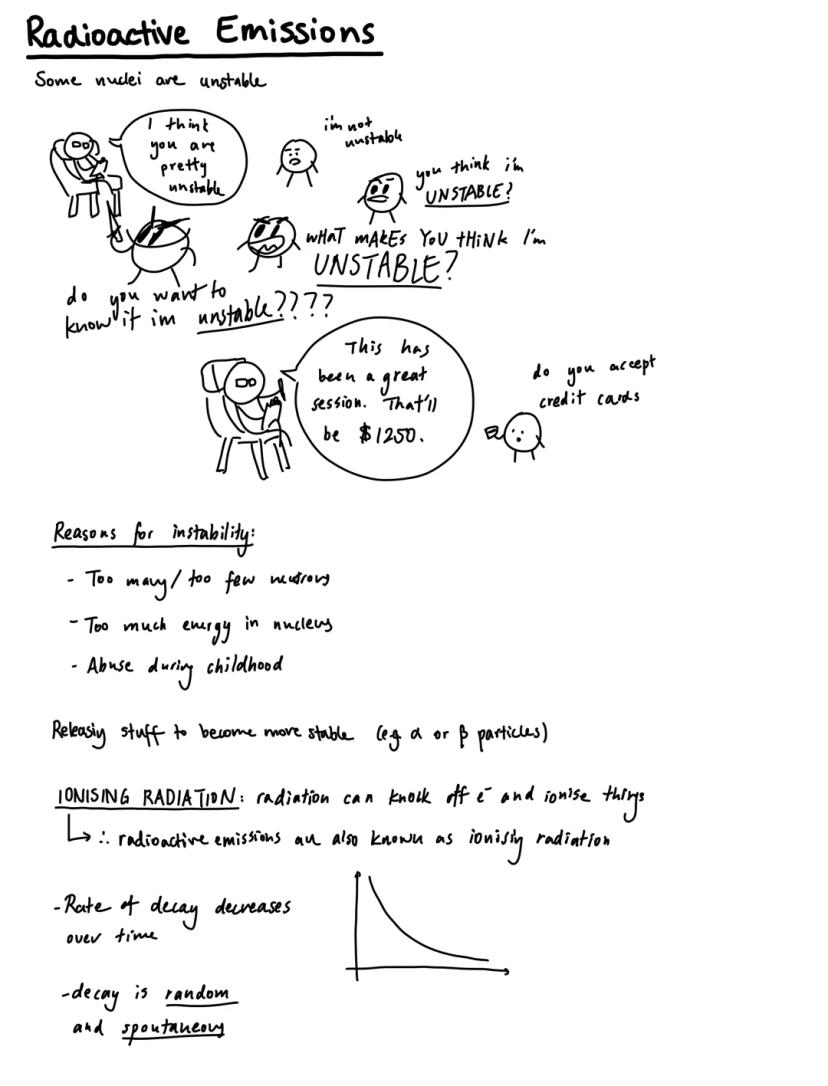 Radioactive Emissions
Some nuclei are unstable
I think
you are
pretty
unstable
i'm not
unstable
you think i'm
UNSTABLE?
WHAT MAKES YOU THINK I'm
UNSTABLE?
do you want to
know if im unstable????
This has
been a great
session. That'll
be $1250.
do you accept
credit cards
Reasons for instability:
- Too many/too few neutrons
- Too much energy in nucleus
- Abuse during childhood
Releasing stuff to become more stable (eg α or β particles)
IONISING RADIATION: radiation can knock off e⁻ and ionise things
∴ radioactive emissions are also known as ionising radiation
- Rate of decay decreases
over time
- decay is random
and spontaneous